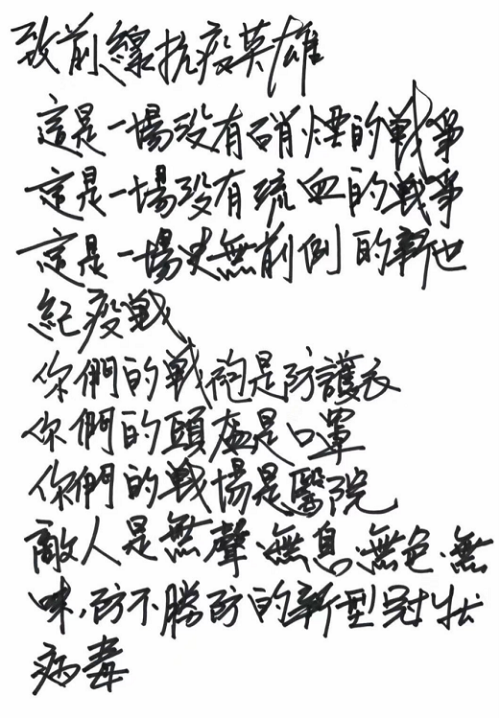 致前線抗疫英雄
這是一場没有硝煙的戰爭
這是一場没有流血的戰爭
這是一場史無前例的新世
紀疫戰
你們的戰袍是防護衣
你們的頭盔是口罩
你們的戰場是醫院
敵人是無聲、無息、無色、無
味,防不勝防的新型冠狀
病毒